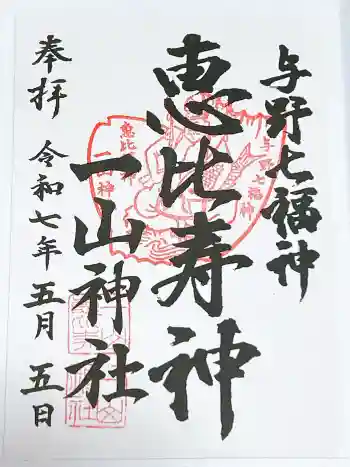 与野七福神
恵比寿神
一山神社
奉拝
令和七年五月五日
与野七福神
恵比
一山神